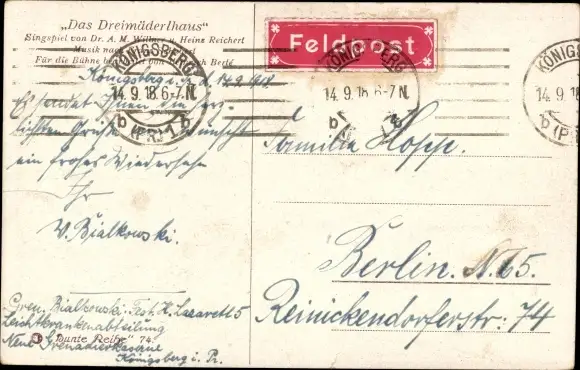 „Das Dreimäderlhaus"
Singspiel von Dr. A. M. Willner u. Heinz Reichert
Musik nach
Für die Bühne
Königsberg i. Pr. 14.9.18
Es sendet Ihnen die herz-
lichsten Grüße wünscht
ein frohes Wiedersehn
Ihr
W. Bialkowski.
Gren. Bialkowski. Fest. H. Lazarett 5
Leichtkrankenabteilung
Neue Grenadierkaserne
Königsberg i. Pr.
„Bunte Reihe" 74.
Feldpost
KÖNIGSBERG
14.9.18.6-7N.
b (PR.) 1 b
KÖNIGSBERG
14.9.18.6-7N
b
KÖNIGS
14.9.18
b (P
Familie Hopp.
Berlin. N. 65.
Reinickendorferstr: 74